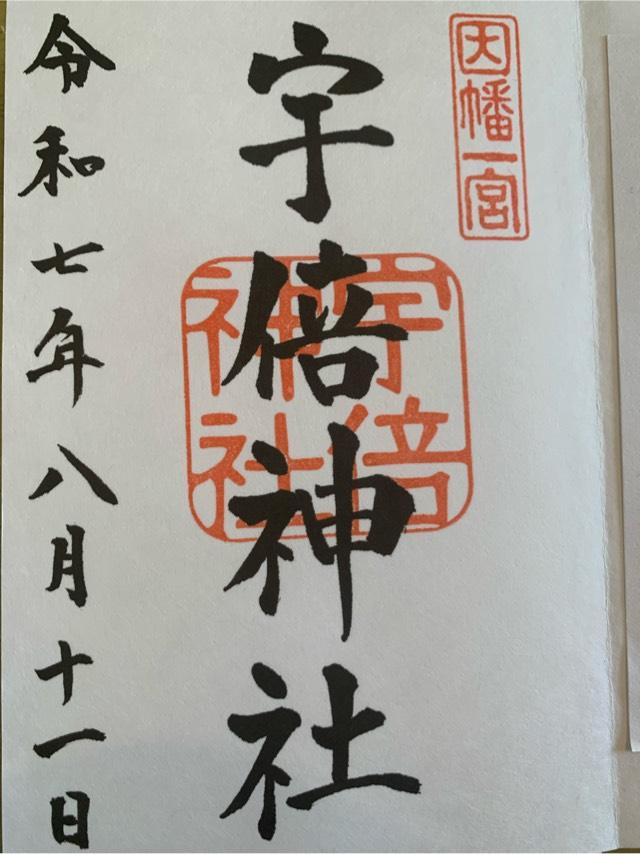 因幡一宮
宇倍神社
宇倍神社
令和七年八月十一日